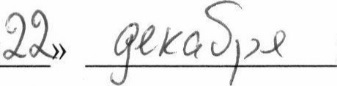 22» декабря